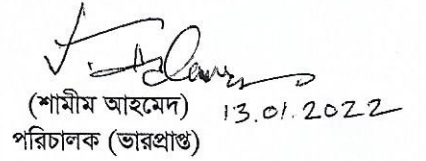 (শামীম আহমেদ) 13.01.2022
পরিচালক (ভারপ্রাপ্ত)